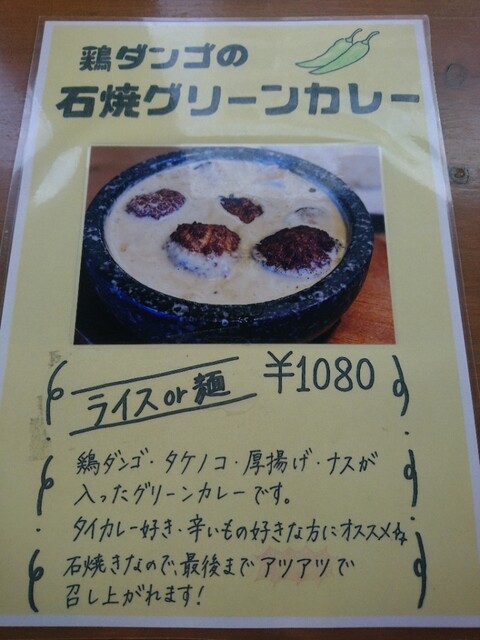 鶏ダンゴの
石焼グリーンカレー
ライスor麺 ¥1080
鶏ダンゴ・タケノコ・厚揚げ・ナスが
入ったグリーンカレーです。
タイカレー好き・辛いもの好きな方にオススメ☆
石焼きなので、最後までアツアツで
召し上がれます!